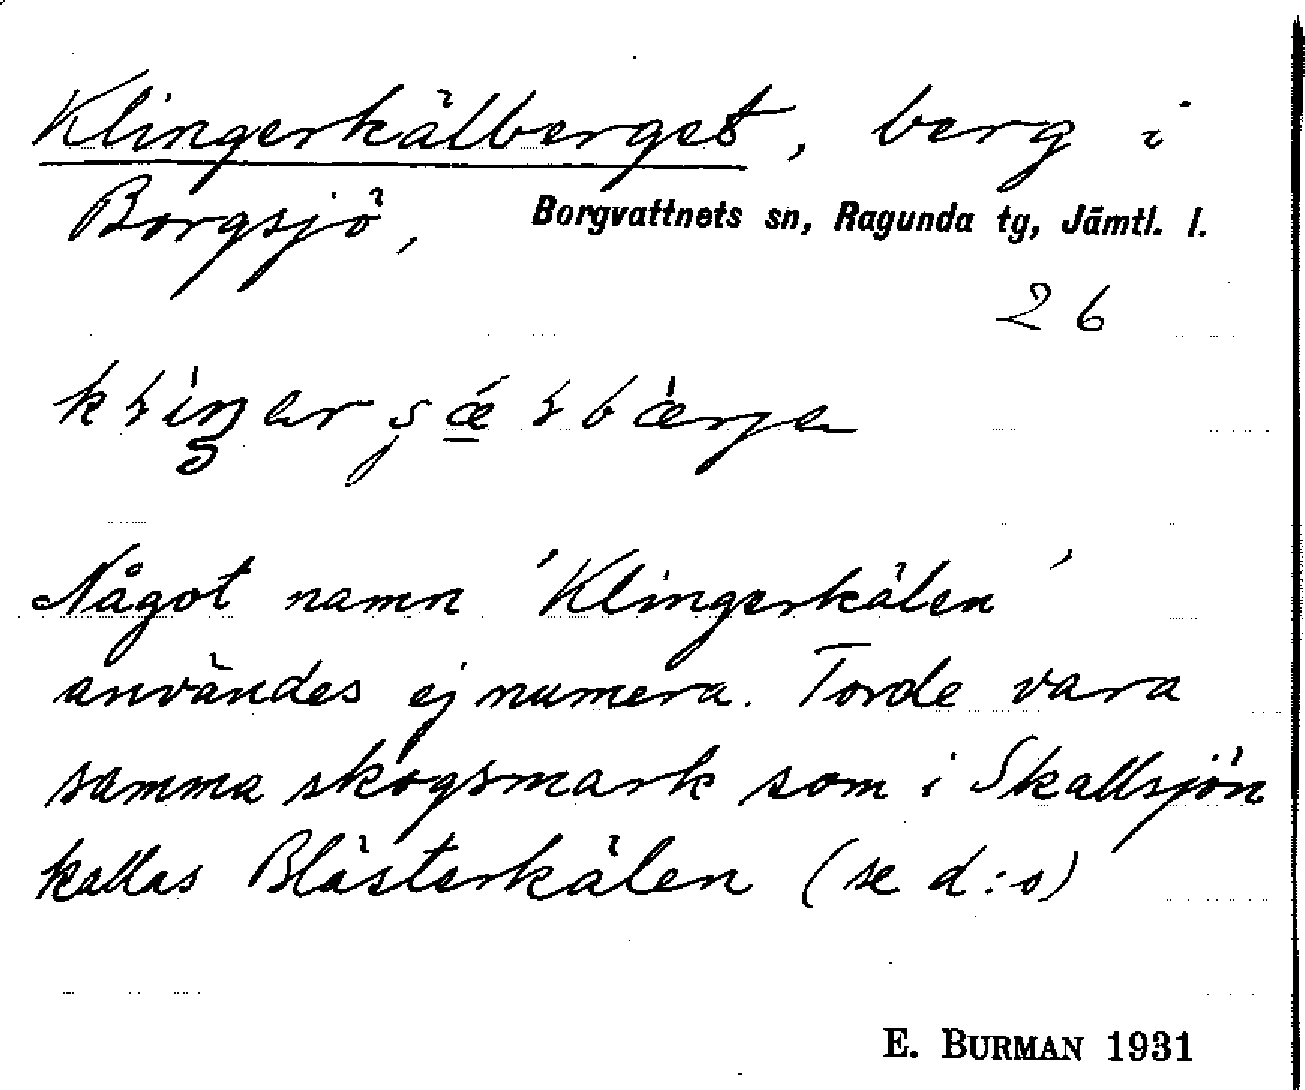 Klingerkälberget, berg i
Borgsjö, Borgvattnets sn, Ragunda tg, Jämtl. l.
26
Något namn 'Klingerkälen'
användes ej numera. Torde vara
samma skogsmark som i Skallsjön
kallas Blästerkälen (se d:o)
E. BURMAN 1931